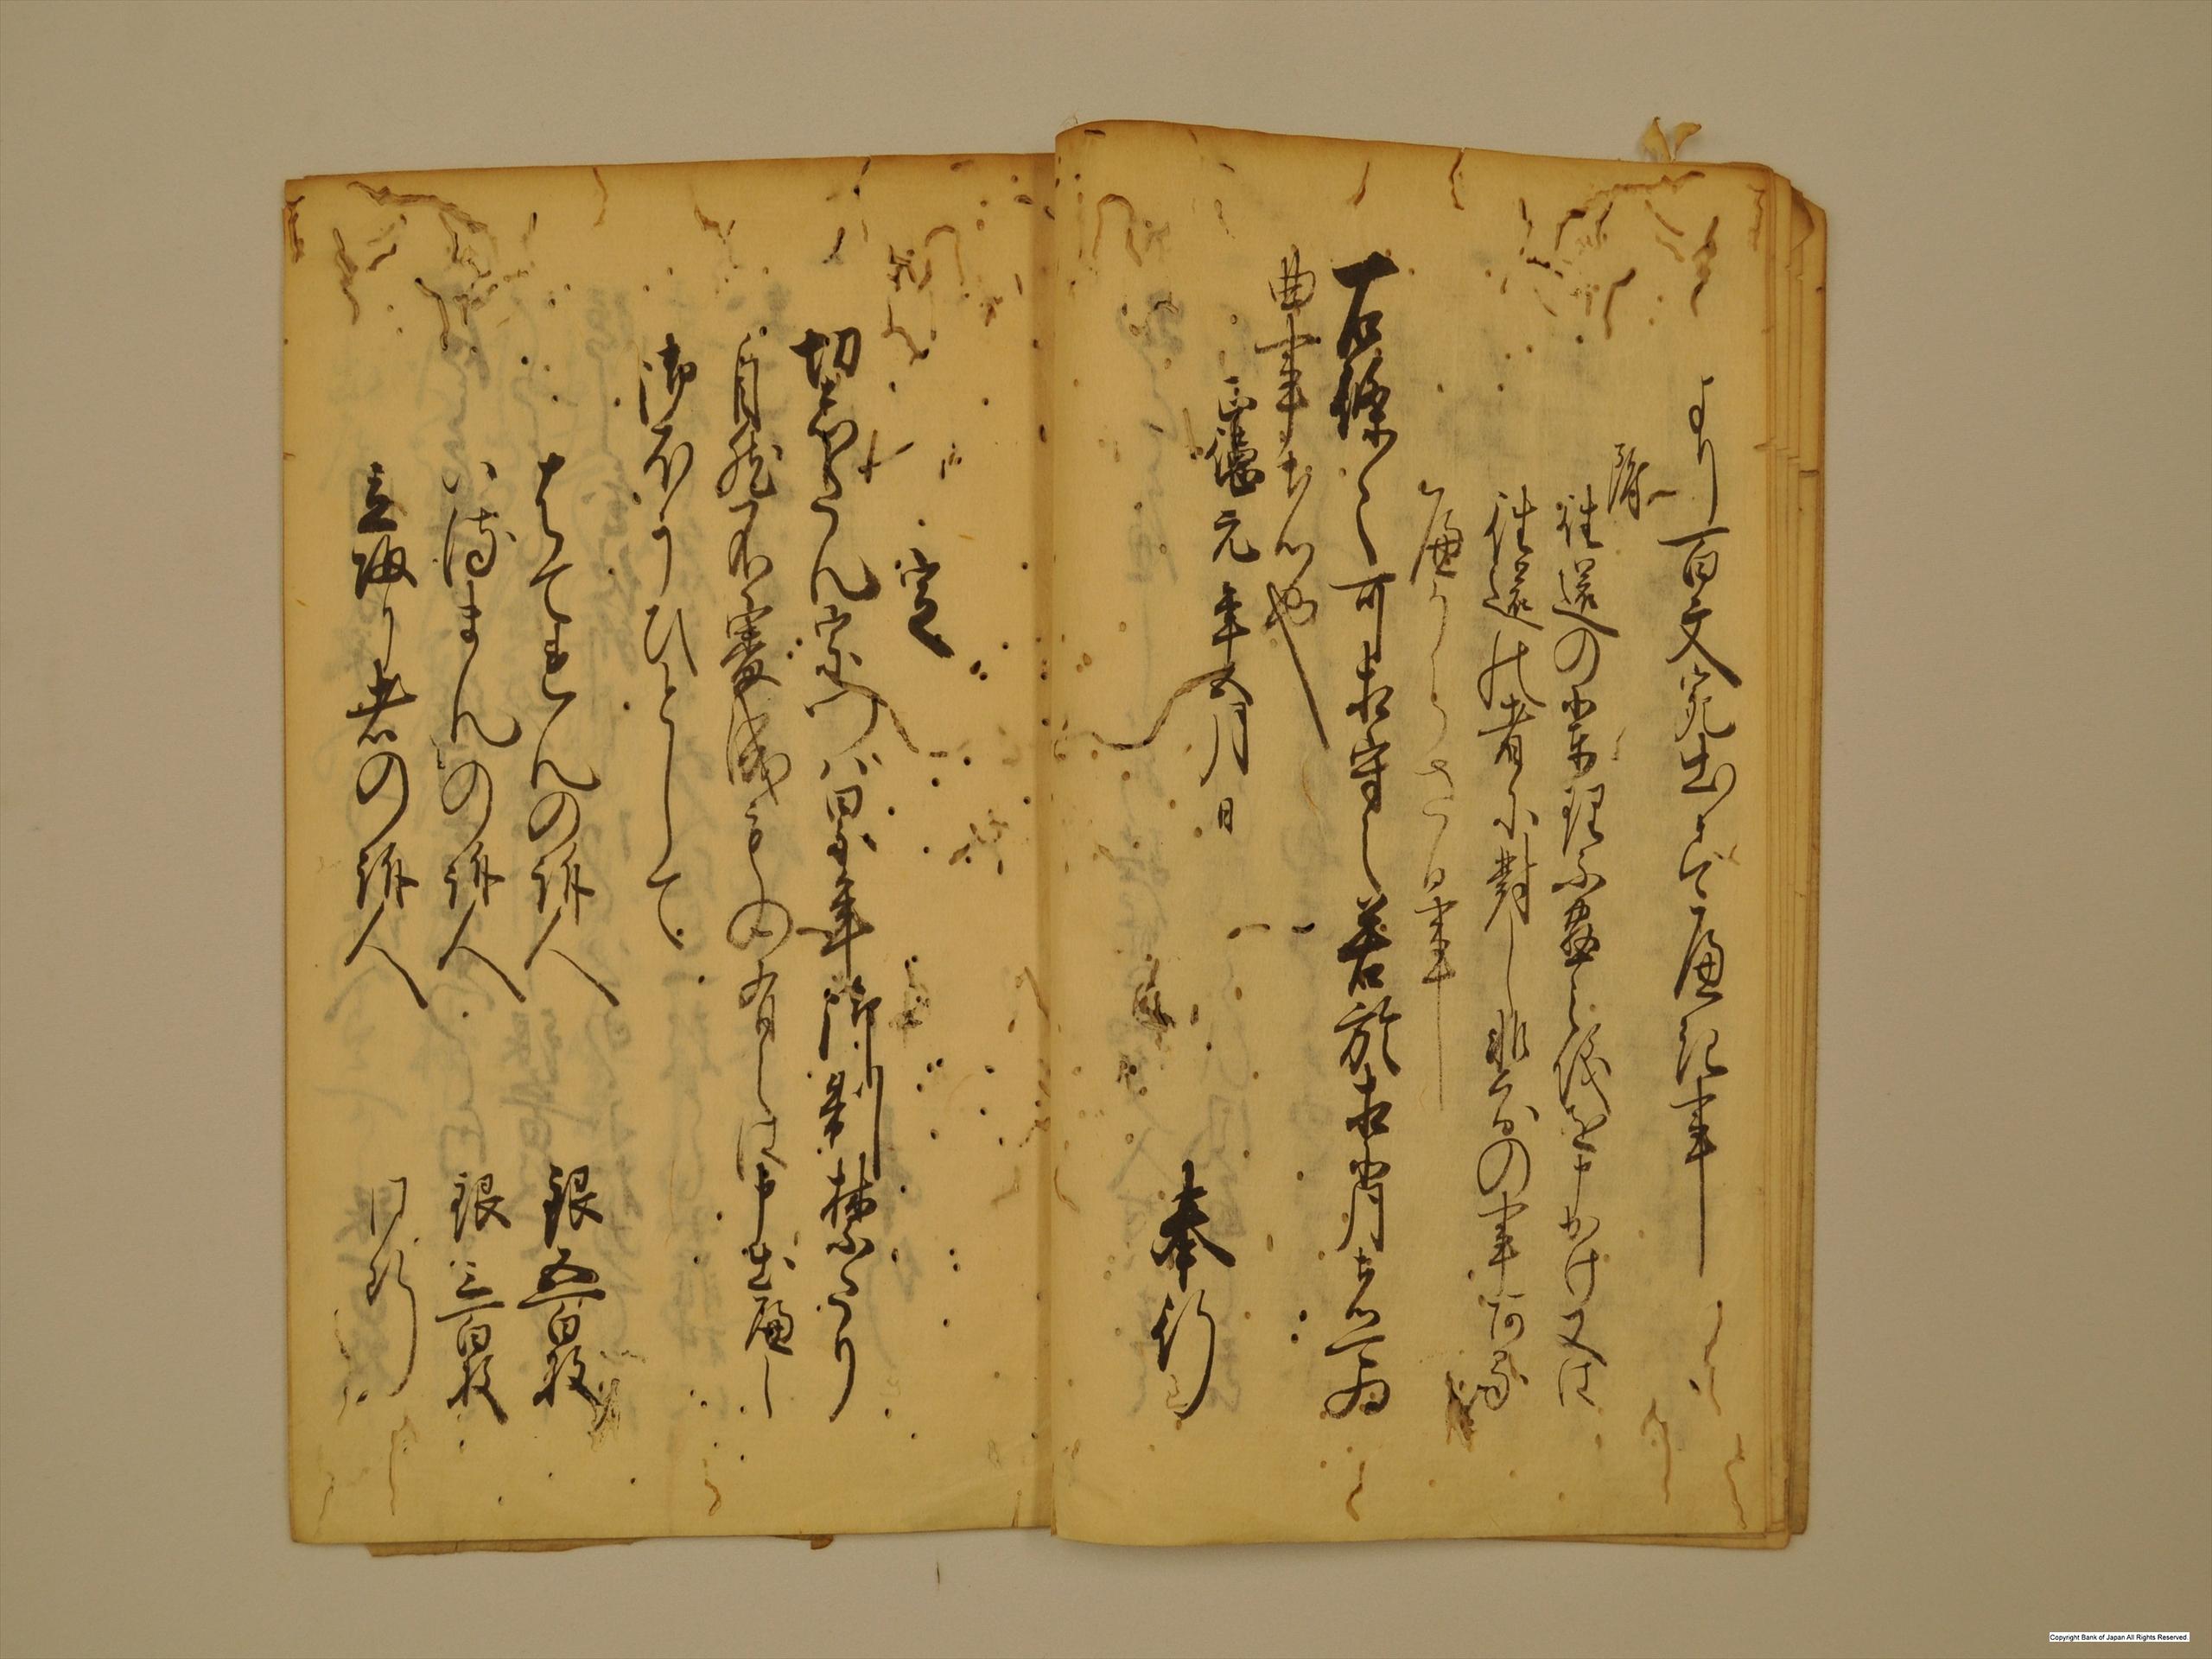 より百文宛出之すへ有之事
附
往還の輩理不盡之儀を申かけ又は
往還の者に對し非分の事有
へからさる事
右條々可相守之若於相背者可為
曲事者也
正徳元年五月日
奉行
定
切支丹宗門ハ累年御制禁たり
自然不審成もの有之は申出へし
御ほうひとして
はてれんの訴人 銀五百枚
いるまんの訴人 銀三百枚
立返り者の訴人 同断
Copyright Bank of Japan All Rights Reserved.